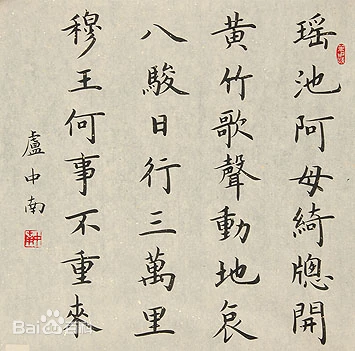 瑶池阿母綺窻開
黄竹歌聲動地哀
八駿日行三萬里
穆王何事不重來
盧中南
Baidu百科